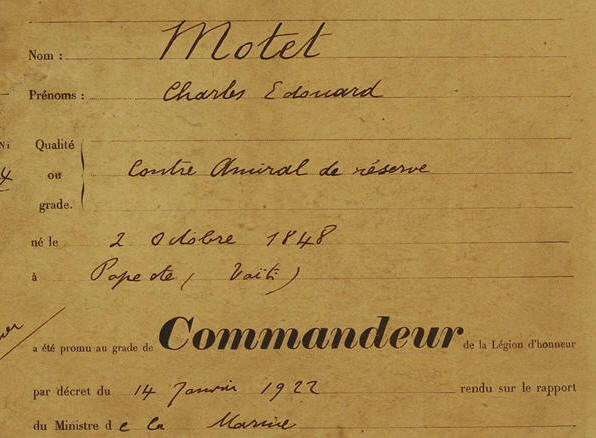 Nom : Motet
Prénoms : Charles Edouard
Qualité
ou Contre Amiral de réserve
grade.
né le 2 Octobre 1848
à Papeete (Taïti)
a été promu au grade de Commandeur de la Légion d'honneur
par décret du 14 Janvier 1922 rendu sur le rapport
du Ministre de la Marine